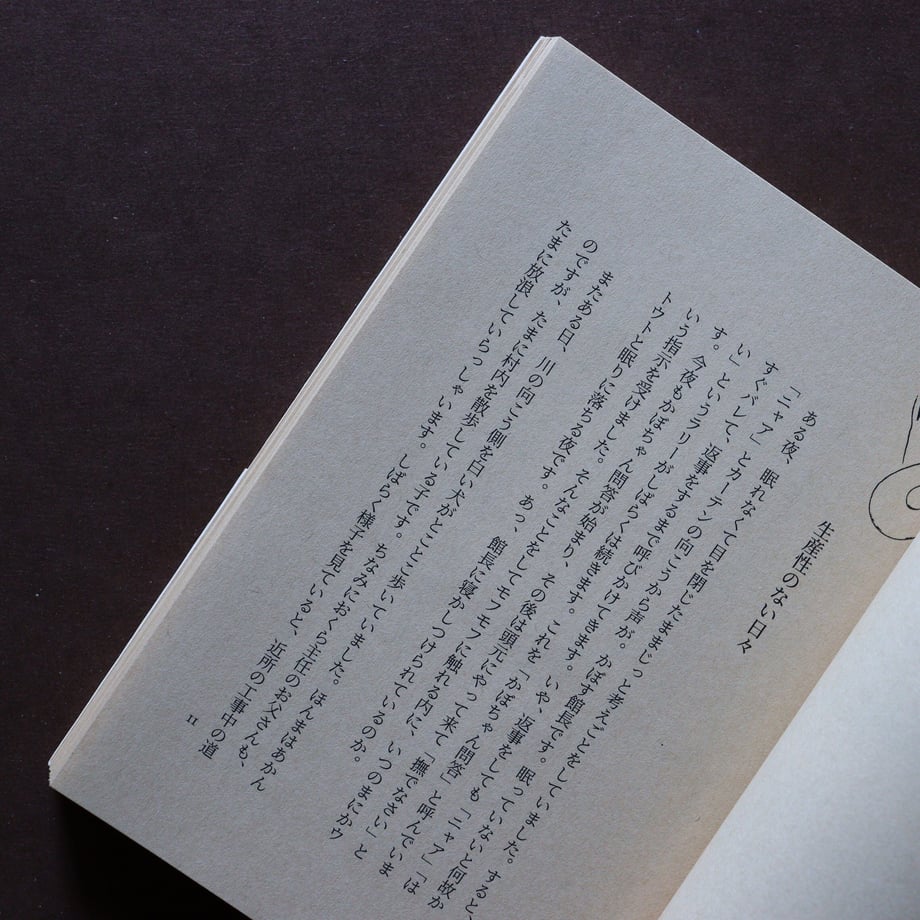 生産性のない日々
ある夜、眠れなくて目を閉じたままじっと考えごとをしていました。すると、
「ニャア」とカーテンの向こうから声が。かぼす館長です。眠っていないと何故か
すぐバレて、返事をするまで呼びかけてきます。いや、返事をしても「ニャア」「は
い」というラリーがしばらくは続きます。これを「かぼちゃん問答」と呼んでいま
す。今夜もかぼちゃん問答が始まり、その後は頭元にやって来て「撫でなさい」と
いう指示を受けました。そんなことをしてモフモフに触れる内に、いつのまにかウ
トウトと眠りに落ちる夜です。あっ、館長に寝かしつけられているのか。
またある日、川の向こう側を白い犬がとことこ歩いていました。ほんまはあかん
のですが、たまに村内を散歩している子です。ちなみにおくら主任のお父さんも、
たまに放浪していらっしゃいます。しばらく様子を見ていると、近所の工事中の道
11